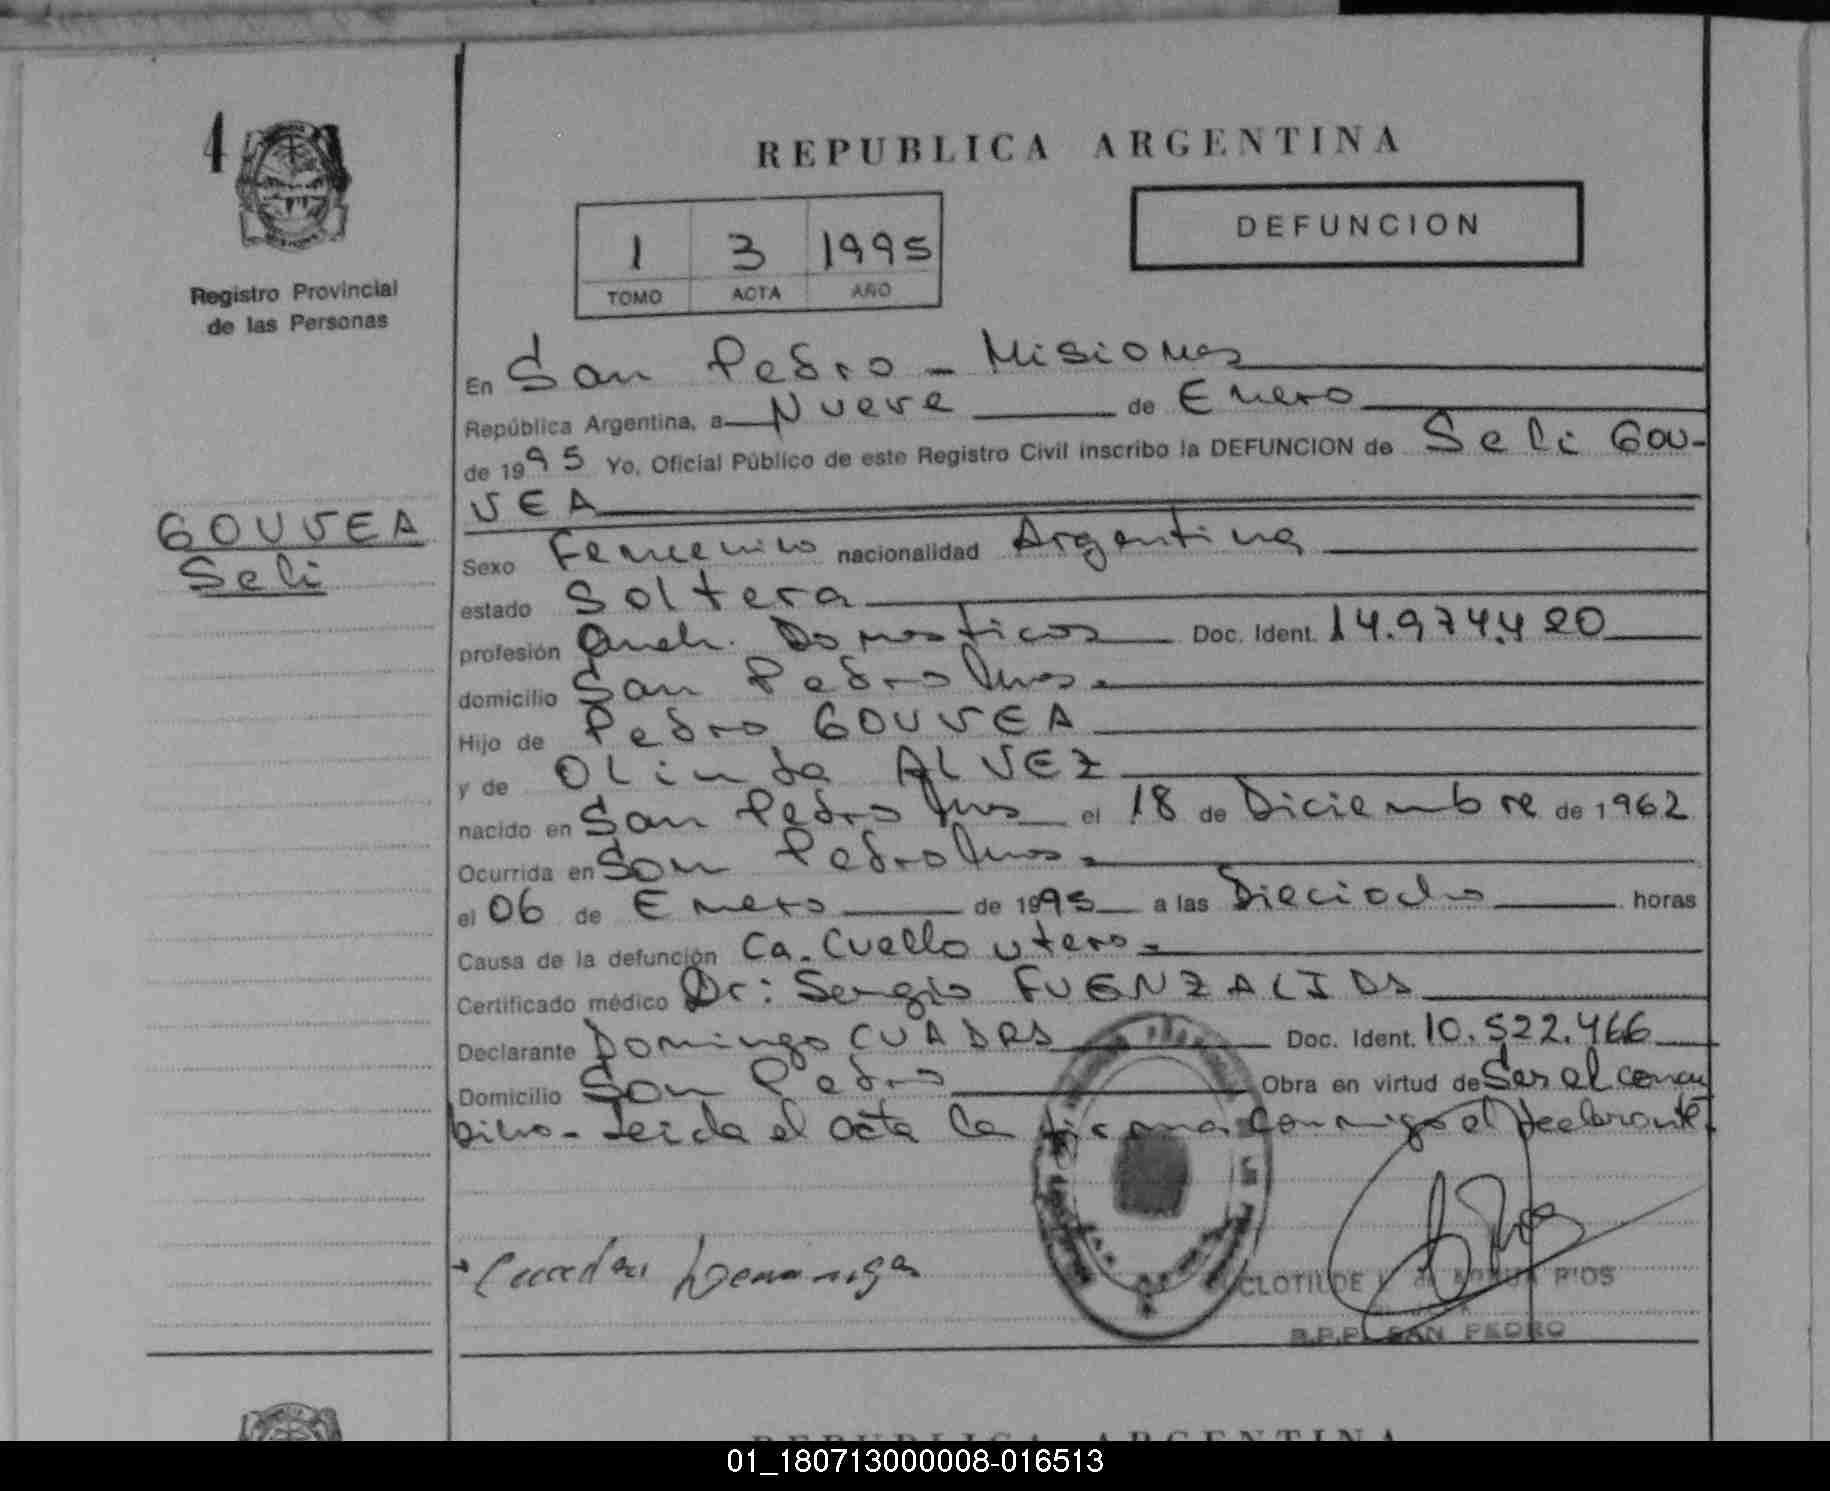 4
REPUBLICA ARGENTINA
DEFUNCION
1 3 1995
TOMO ACTA AÑO
Registro Provincial
de las Personas
En San Pedro - Misiones
República Argentina, a Nueve de Enero
de 1995 Yo, Oficial Público de este Registro Civil inscribo la DEFUNCION de Seli GOU-
VEA
GOUVEA
Seli
Sexo Femenino nacionalidad Argentina
estado Soltera
profesión Domesticos Doc. Ident. 14.974.420
domicilio San Pedro Mnes.
Hijo de Pedro GOUVEA
y de Olinda ALVEZ
nacido en San Pedro Mnes el 18 de Diciembre de 1962
Ocurrida en San Pedro Mnes.
el 06 de Enero de 1995 a las Dieciocho horas
Causa de la defunción Ca. Cuello utero-
Certificado médico Dr: Sergio FUENZALIDA
Declarante Domingo CUADRA Doc. Ident. 10.522.466
Domicilio San Pedro Obra en virtud de Ser el concu
bino- Leida el acta la firma conmigo el declarante
CLOTILDE RIOS
SAN PEDRO
REPUBLICA ARGENTINA
01_180713000008-016513